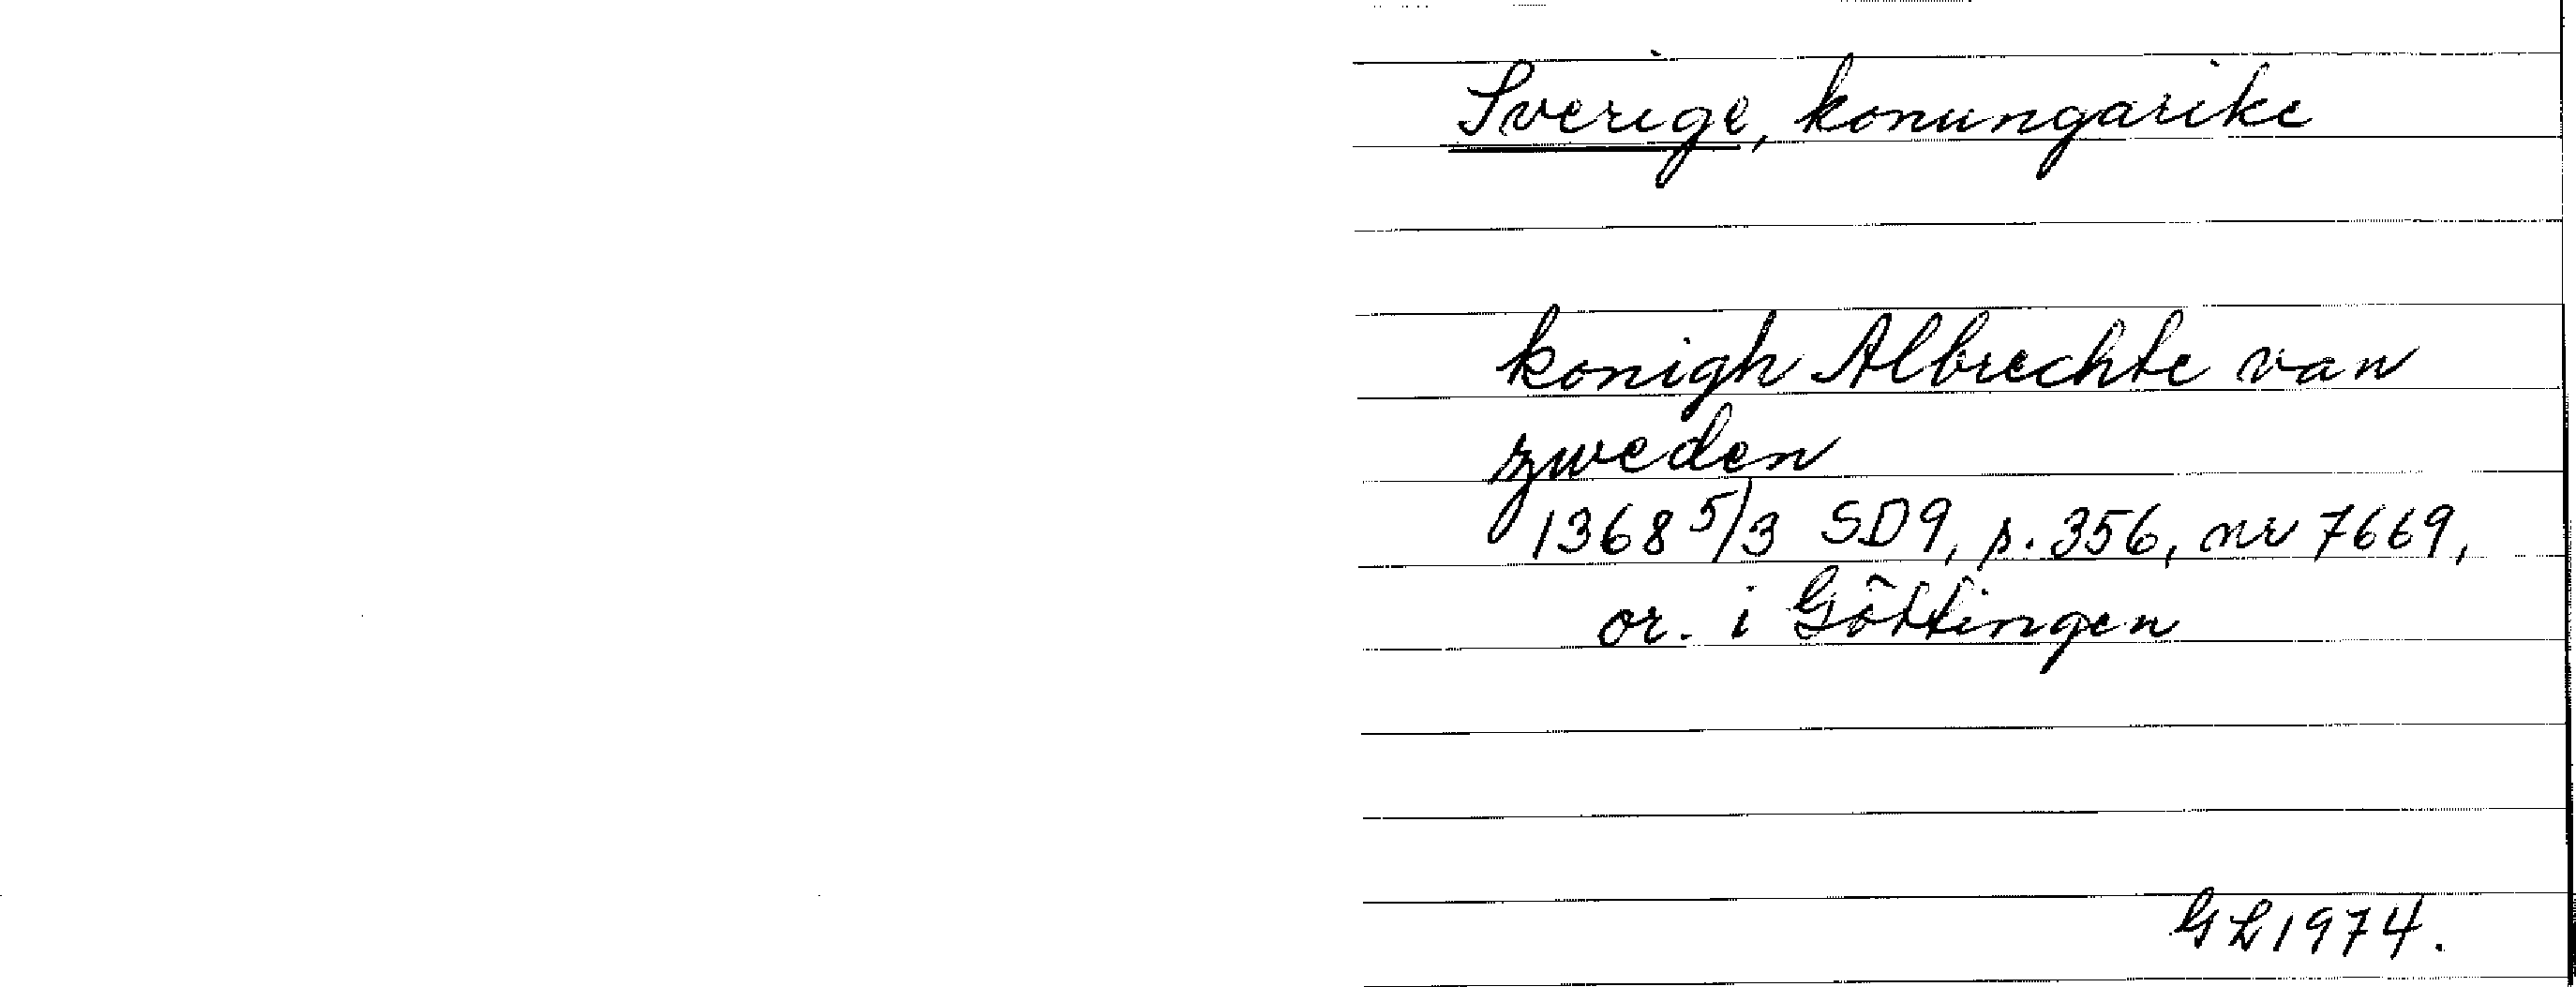 Sverige, konungarike
konigh Albrechte van
zweden
1368 5/3 SD9, p. 356, nr 7669,
or. i Göttingen
GL1974.